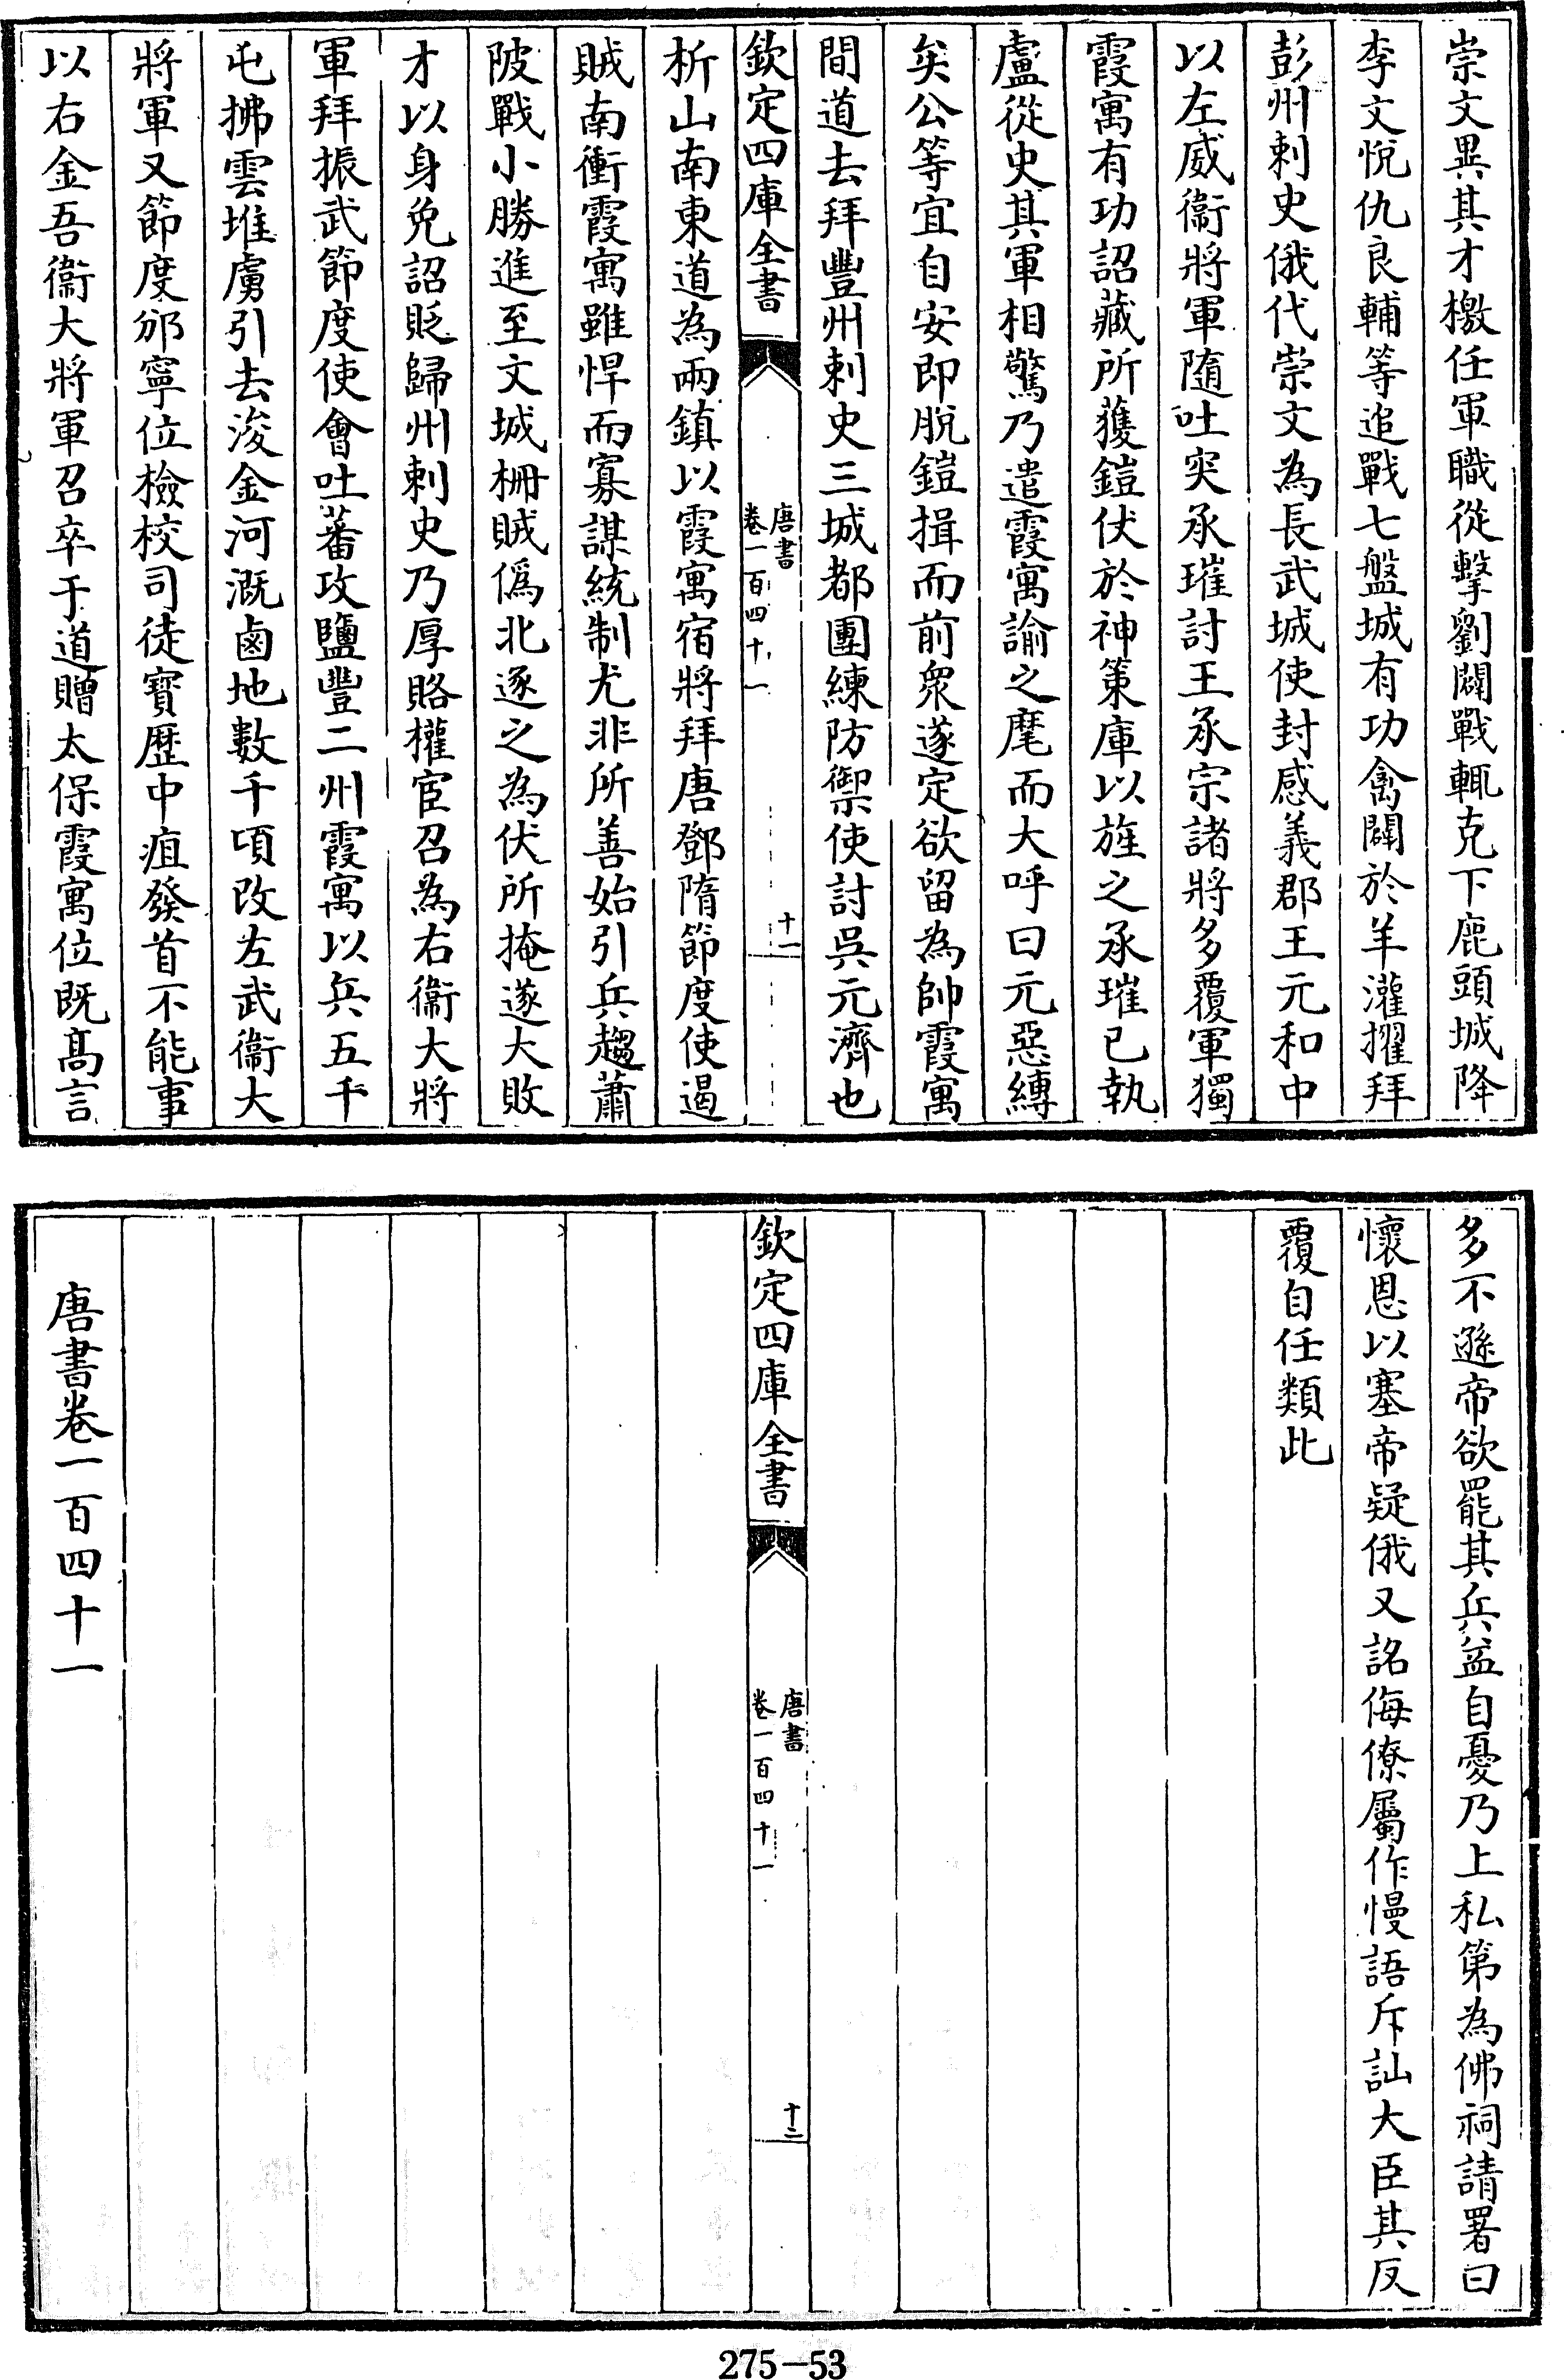 崇文異其才檄任軍職從擊劉闢戰輒克下鹿頭城降
李文悅仇良輔等追戰七盤城有功禽闢於羊灌擢拜
彭州刺史俄代崇文為長武城使封感義郡王元和中
以左威衞將軍隨吐突承璀討王承宗諸將多覆軍獨
霞寓有功詔藏所獲鎧仗於神策庫以旌之承璀已執
盧從史其軍相驚乃遣霞寓諭之麾而大呼曰元惡縛
矣公等宜自安即脫鎧揖而前衆遂定欲留為帥霞寓
間道去拜豐州刺史三城都團練防禦使討吳元濟也
欽定四庫全書
唐書
卷一百四十一
十一
析山南東道為兩鎮以霞寓宿將拜唐鄧隋節度使遏
賊南衝霞寓雖悍而寡謀統制尤非所善始引兵趨蕭
陂戰小勝進至文城柵賊偽北逐之為伏所掩遂大敗
才以身免詔貶歸州刺史乃厚賂權宦召為右衞大將
軍拜振武節度使會吐蕃攻鹽豐二州霞寓以兵五千
屯拂雲堆虜引去浚金河溉鹵地數千頃改左武衞大
將軍又節度邠寧位檢校司徒寳歷中疽發首不能事
以右金吾衞大將軍召卒于道贈太保霞寓位既髙言
多不遜帝欲罷其兵益自憂乃上私第為佛祠請署曰
懷恩以塞帝疑俄又詺侮僚屬作慢語斥訕大臣其反
覆自任類此
欽定四庫全書
唐書
卷一百四十一
十二
唐書卷一百四十一
275-53